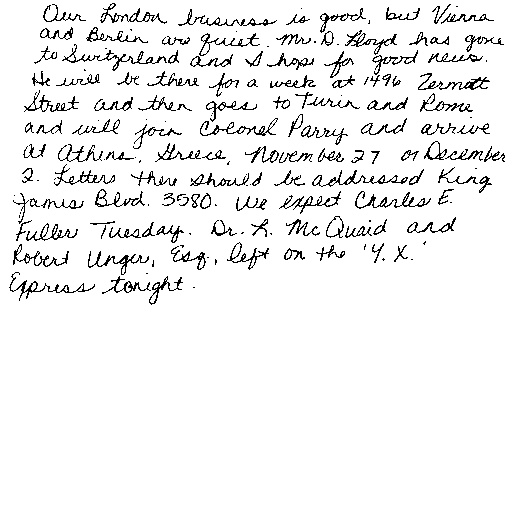 Our London business is good, but Vienna
and Berlin are quiet. Mr. D. Lloyd has gone
to Switzerland and I hope for good news.
He will be there for a week at 1496 Zermott
Street and then goes to Turin and Rome
and will join Colonel Parry and arrive
at Athens, Greece, November 27 or December
2. Letters there should be addressed King
James Blvd. 3580. We expect Charles E.
Fuller Tuesday. Dr. L. McQuaid and
Robert Unger, Esq., left on the 'Y. X.'
Express tonight.